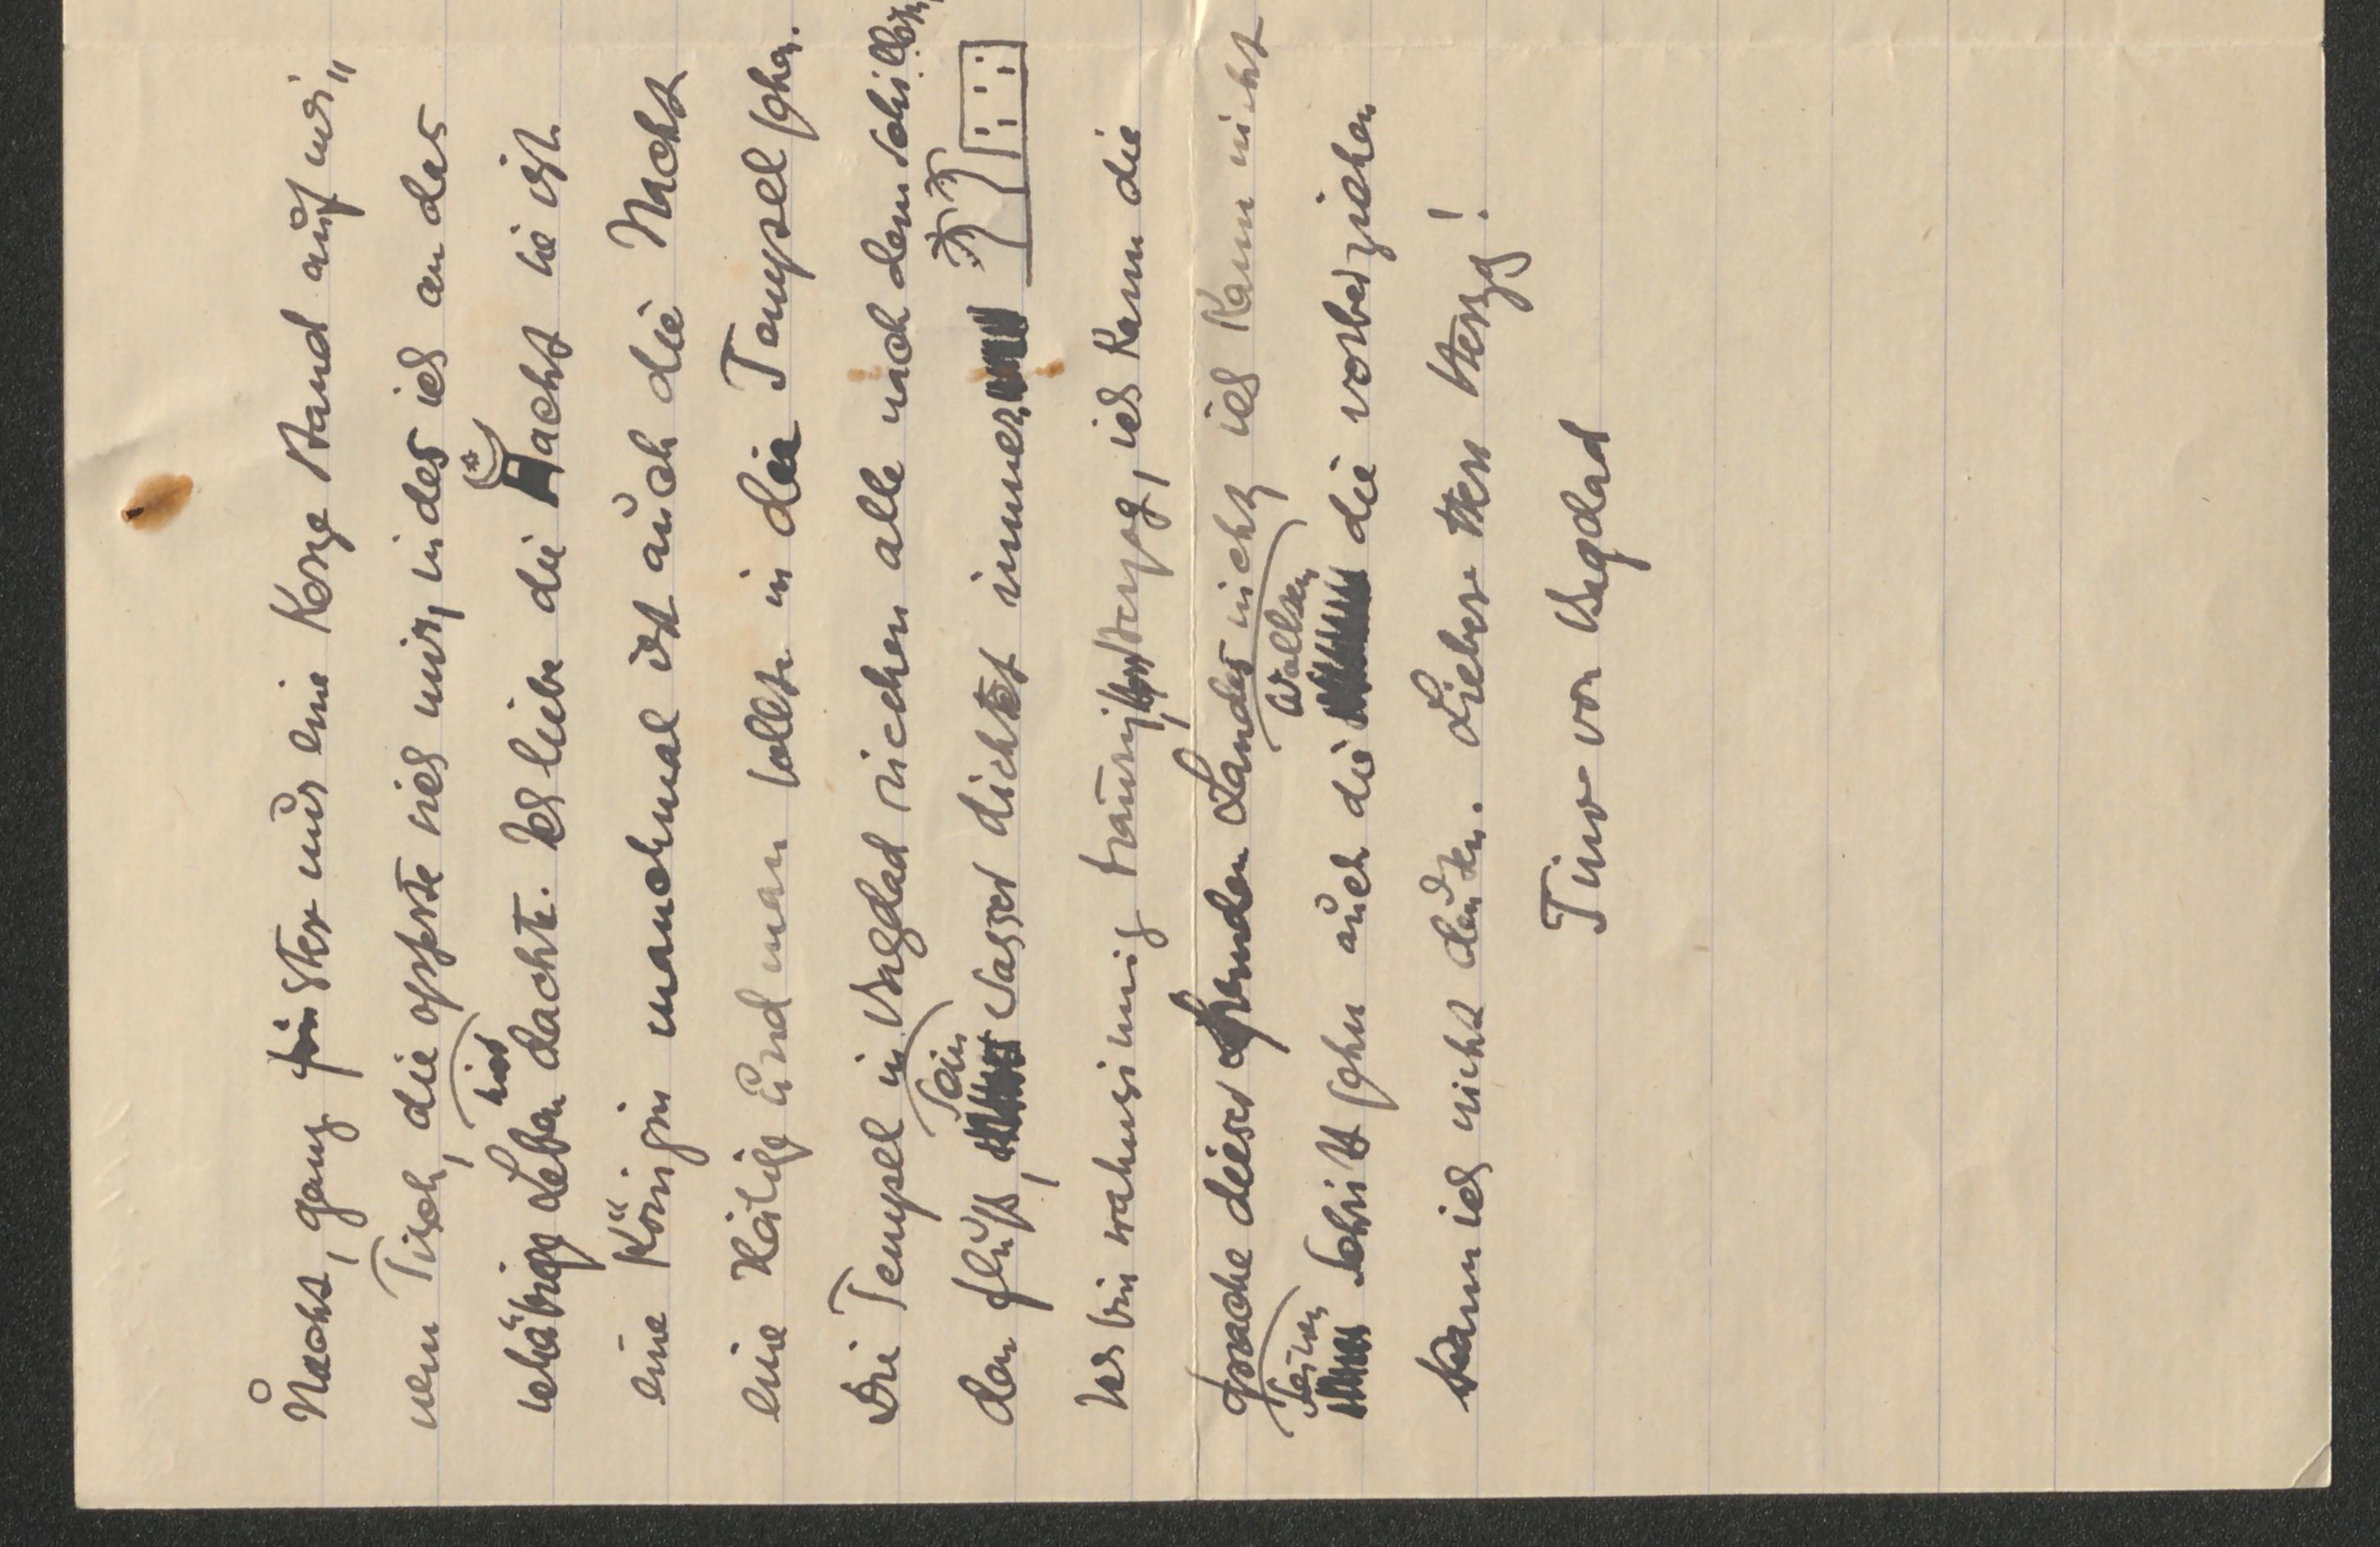 Nacht, ganz finster nur eine Kerze stand auf mei„
nem Tisch, die opferte sich mir, in der ich an das
schäbige Leben hier dachte. Ich liebe die Nacht sie ist
eine Königin manchmal ist auch die Nacht
eine Heilige und man sollte in die Tempel gehen.
Die Tempel in Bagdad riechen alle nach dem Schilf
den Fluß, Sein Wasser dichtet immer
Ich bin wahnsinnig traurig, ich kann die
Sprache dieser fremden Landes nicht, ich kann nicht
Seinen Schritt gehn auch die Wolken die vorberziehen
kann ich nicht deuten. Lieber Herr Herzog!
Tino von Bagdad